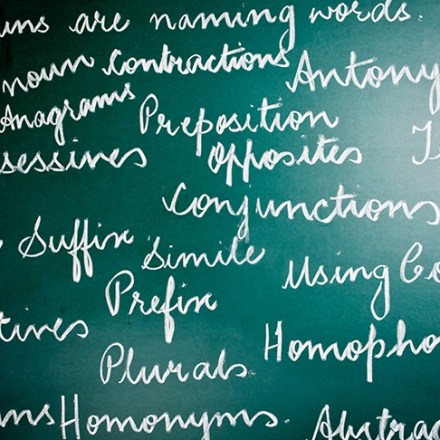 uns are naming words.
noun Contractions Antony
Anagrams Preposition
sessives Opposites
Conjunctions
Suffix Simile Using Co
Prefix
tives Homopho
Plurals.
ms Homonyms. Abstrac